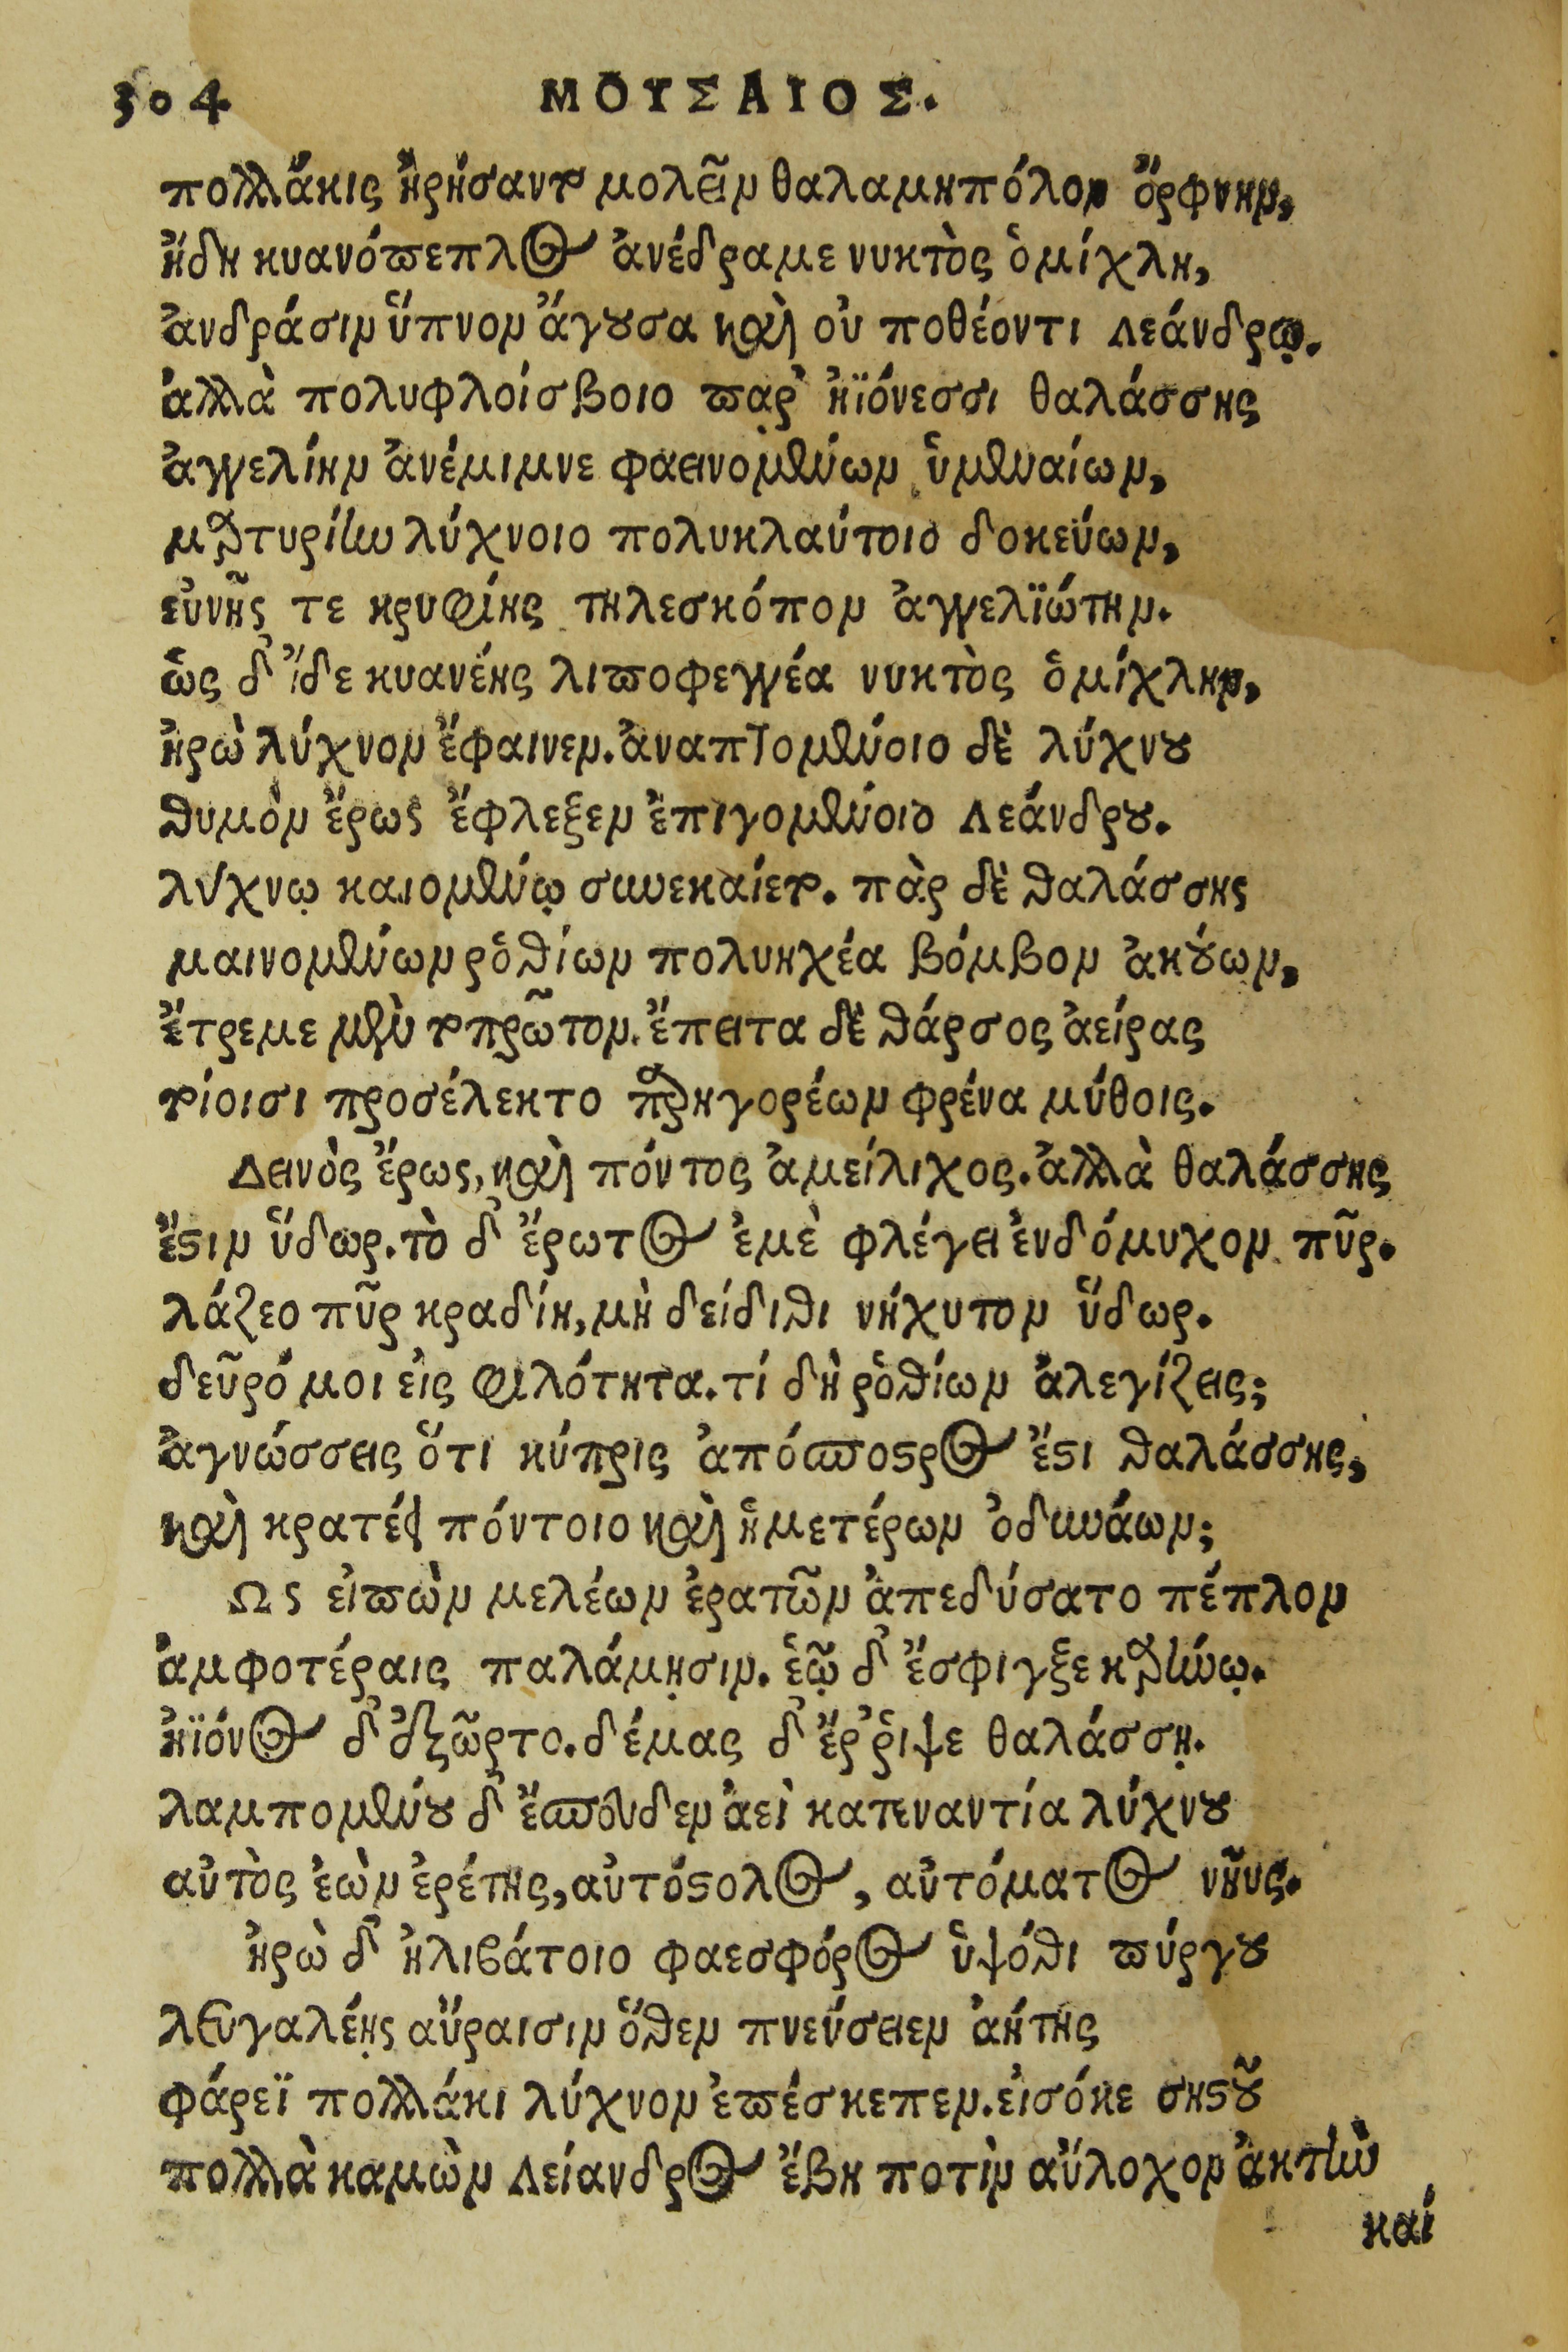 304 ΜΟΥΣΑΙΟΣ.
πολλάκις ἠρήσαντο μολεῖν θαλαμηπόλον ὄρφνην,
ἤδη κυανόπεπλος ἀνέδραμε νυκτὸς ὁμίχλη,
ἀνδράσιν ὕπνον ἄγουσα καὶ οὐ ποθέοντι Λεάνδρῳ.
ἀλλὰ πολυφλοίσβοιο παρ' ἠϊόνεσσι θαλάσσης
ἀγγελίην ἀνέμιμνε φαεινομένων ὑμεναίων,
μαρτυρίην λύχνοιο πολυκλαύτοιο δοκεύων,
εὐνῆς τε κρυφίης τηλεσκόπον ἀγγελϊώτην.
ὡς δ' ἴδε κυανέης λιποφεγγέα νυκτὸς ὁμίχλην,
ἡρὼ λύχνον ἔφαινεν. ἀναπτομένοιο δὲ λύχνου
θυμὸν ἔρως ἔφλεξεν ἐπιγομένοιο Λεάνδρου.
λύχνῳ καιομένῳ συνεκαίετο. πὰρ δὲ θαλάσσης
μαινομένων ῥοθίων πολυηχέα βόμβον ἀκούων,
ἔτρεμε μὲν τοπρῶτον. ἔπειτα δὲ θάρσος ἀείρας
τοίοισι προσέλεκτο παρηγορέων φρένα μύθοις.
Δεινὸς ἔρως, καὶ πόντος ἀμείλιχος. ἀλλὰ θαλάσσης
ἔστιν ὕδωρ. τὸ δ' ἔρωτος ἐμὲ φλέγει ἐνδόμυχον πῦρ.
λάζεο πῦρ κραδίη, μὴ δείδιθι νήχυτον ὕδωρ.
δεῦρό μοι εἰς φιλότητα. τί δὴ ῥοθίων ἀλεγίζεις;
ἀγνώσσεις ὅτι κύπρις ἀπόσπορος ἔστι θαλάσσης,
καὶ κρατέει πόντοιο καὶ ἡμετέρων ὀδυνάων;
Ως εἰπὼν μελέων ἐρατῶν ἀπεδύσατο πέπλον
ἀμφοτέραις παλάμῃσιν. ἑῷ δ' ἔσφιγξε καρήνῳ.
ἠϊόνος δ' ἐξῶρτο. δέμας δ' ἔῤῥιψε θαλάσσῃ.
λαμπομένου δ' ἔσπευδεν ἀεὶ κατεναντία λύχνου
αὐτὸς ἐὼν ἐρέτης, αὐτόστολος, αὐτόματος νηῦς.
ἡρὼ δ' ἠλιβάτοιο φαεσφόρος ὑψόθι πύργου
λευγαλέῃς αὔραισιν ὅθεν πνεύσειεν ἀήτης
φάρεϊ πολλάκι λύχνον ἐπέσκεπεν. εἰσόκε σηστοῦ
πολλὰ καμὼν Λείανδρος ἔβη ποτὶν αὔλοχον ἀκτὴν
καί